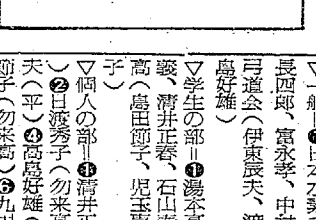 ▽一般=❶日本水素
長四郎、富永孝、中村
弓道会(伊東辰夫、渡
島好雄)
▽学生の部=❶湯本高
義、清井正春、石山
高(島田節子、児玉
子)
▽個人の部=❶清井正
)❷日渡秀子(勿来高
夫(平)❹高島好雄(
節子(勿来高)❻九